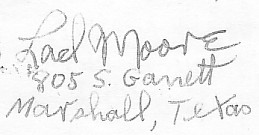 Lael Moore
805 S. Garrett
Marshall, Texas